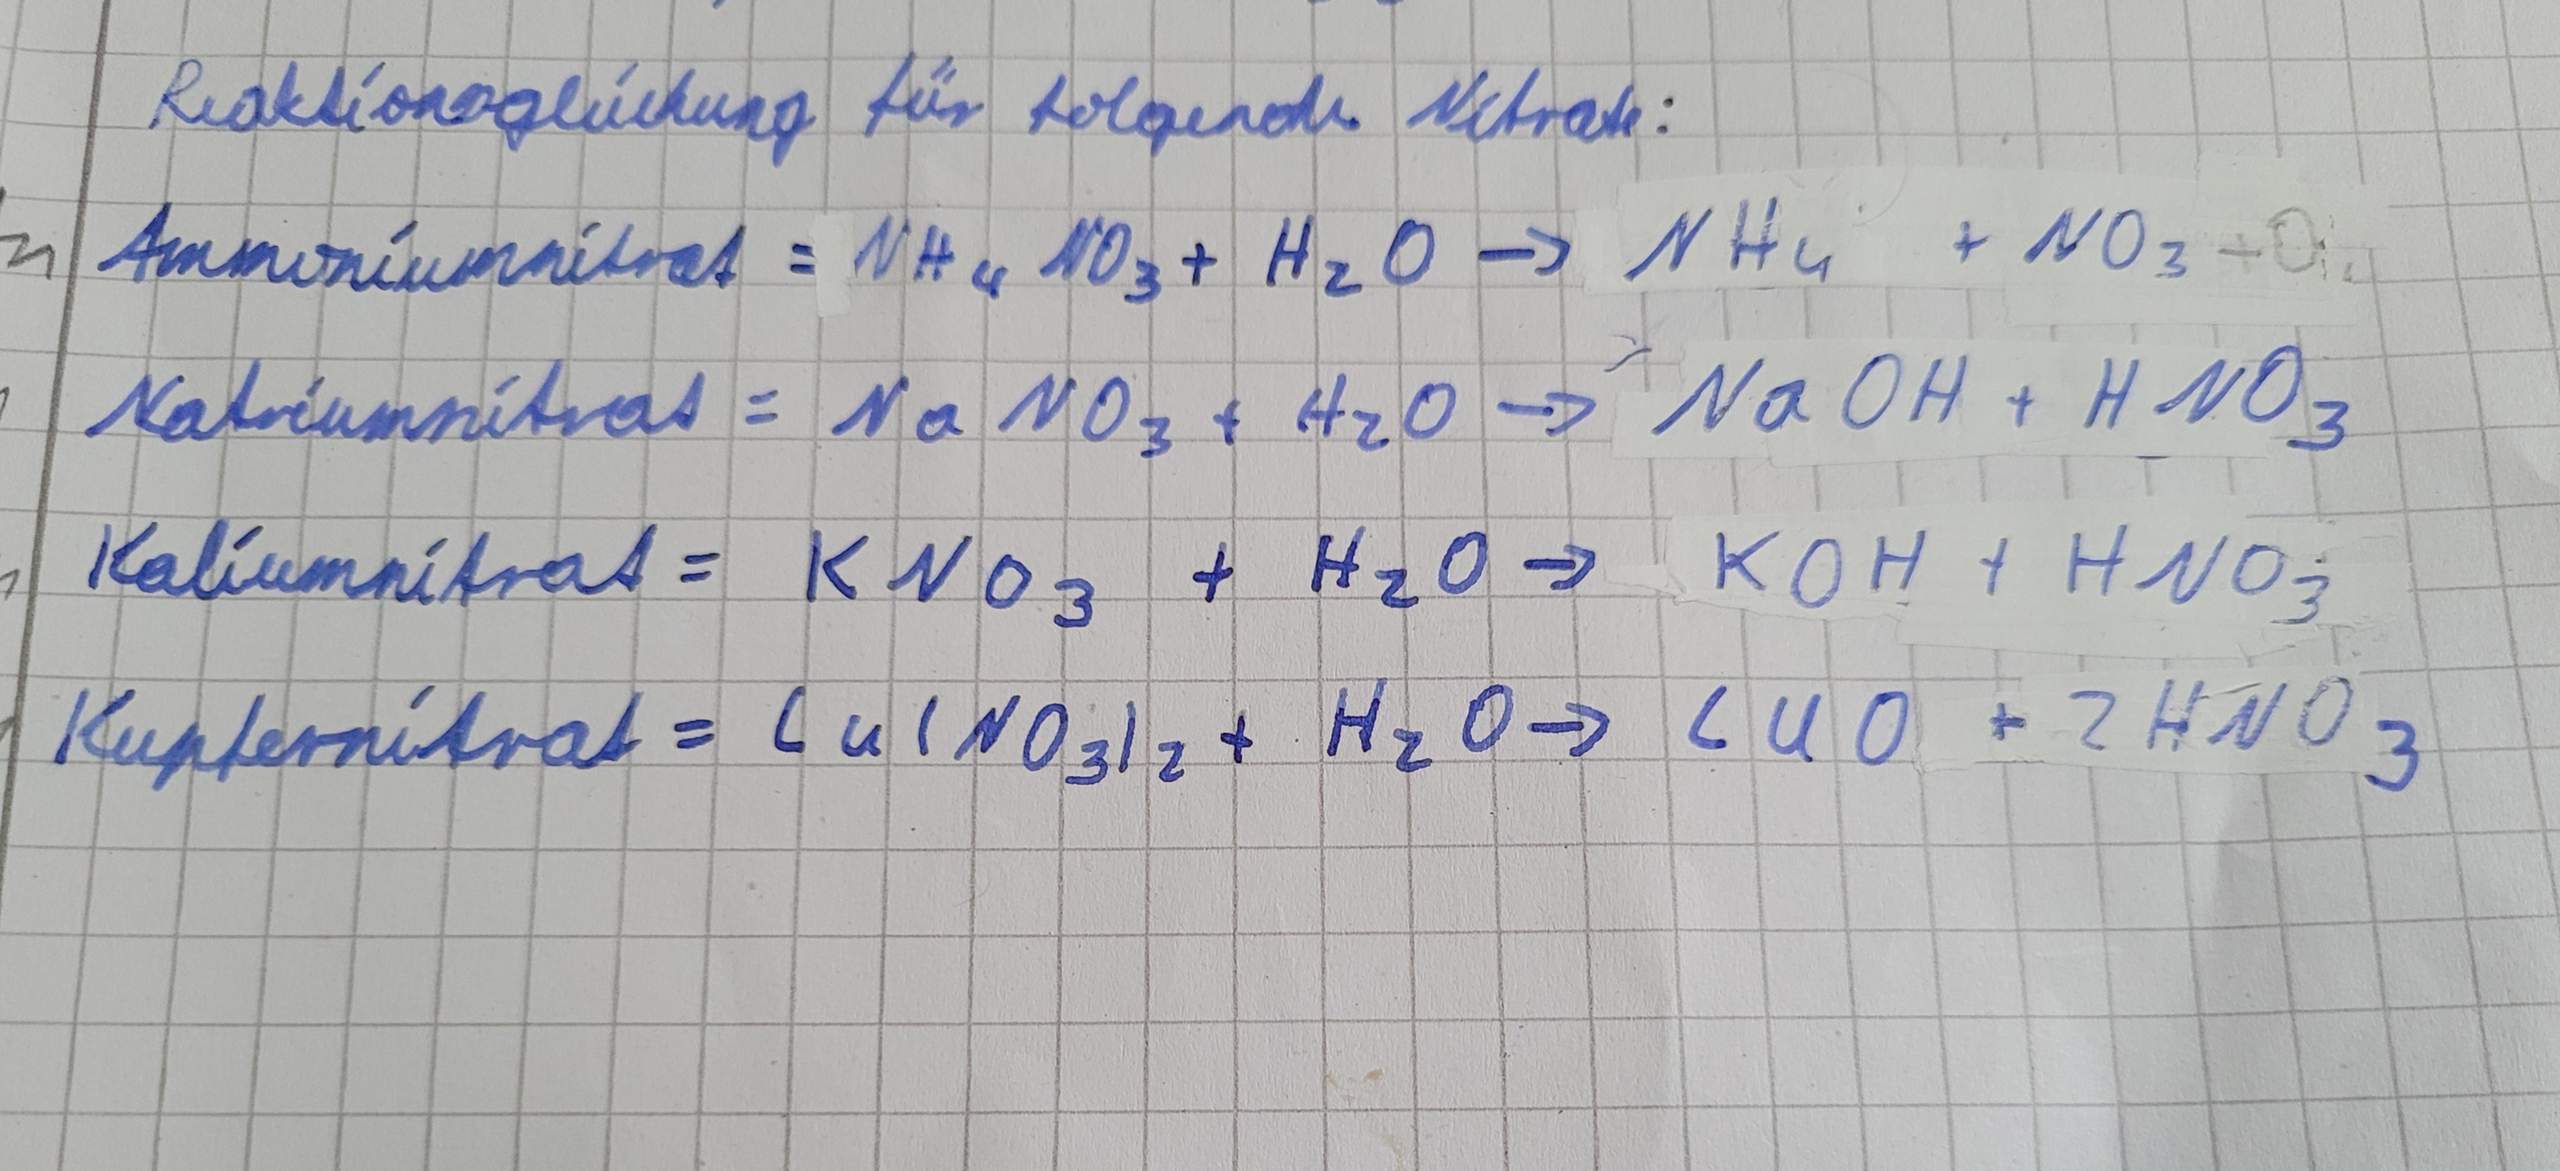 Reaktionsgleichung für folgende Nitrate:
Ammoniumnitrat = NH₄ NO₃ + H₂O → NH₄ + NO₃
Natriumnitrat = Na NO₃ + H₂O → NaOH + HNO₃
Kaliumnitrat = KNO₃ + H₂O → KOH + HNO₃
Kupfernitrat = Cu(NO₃)₂ + H₂O → CuO + 2HNO₃